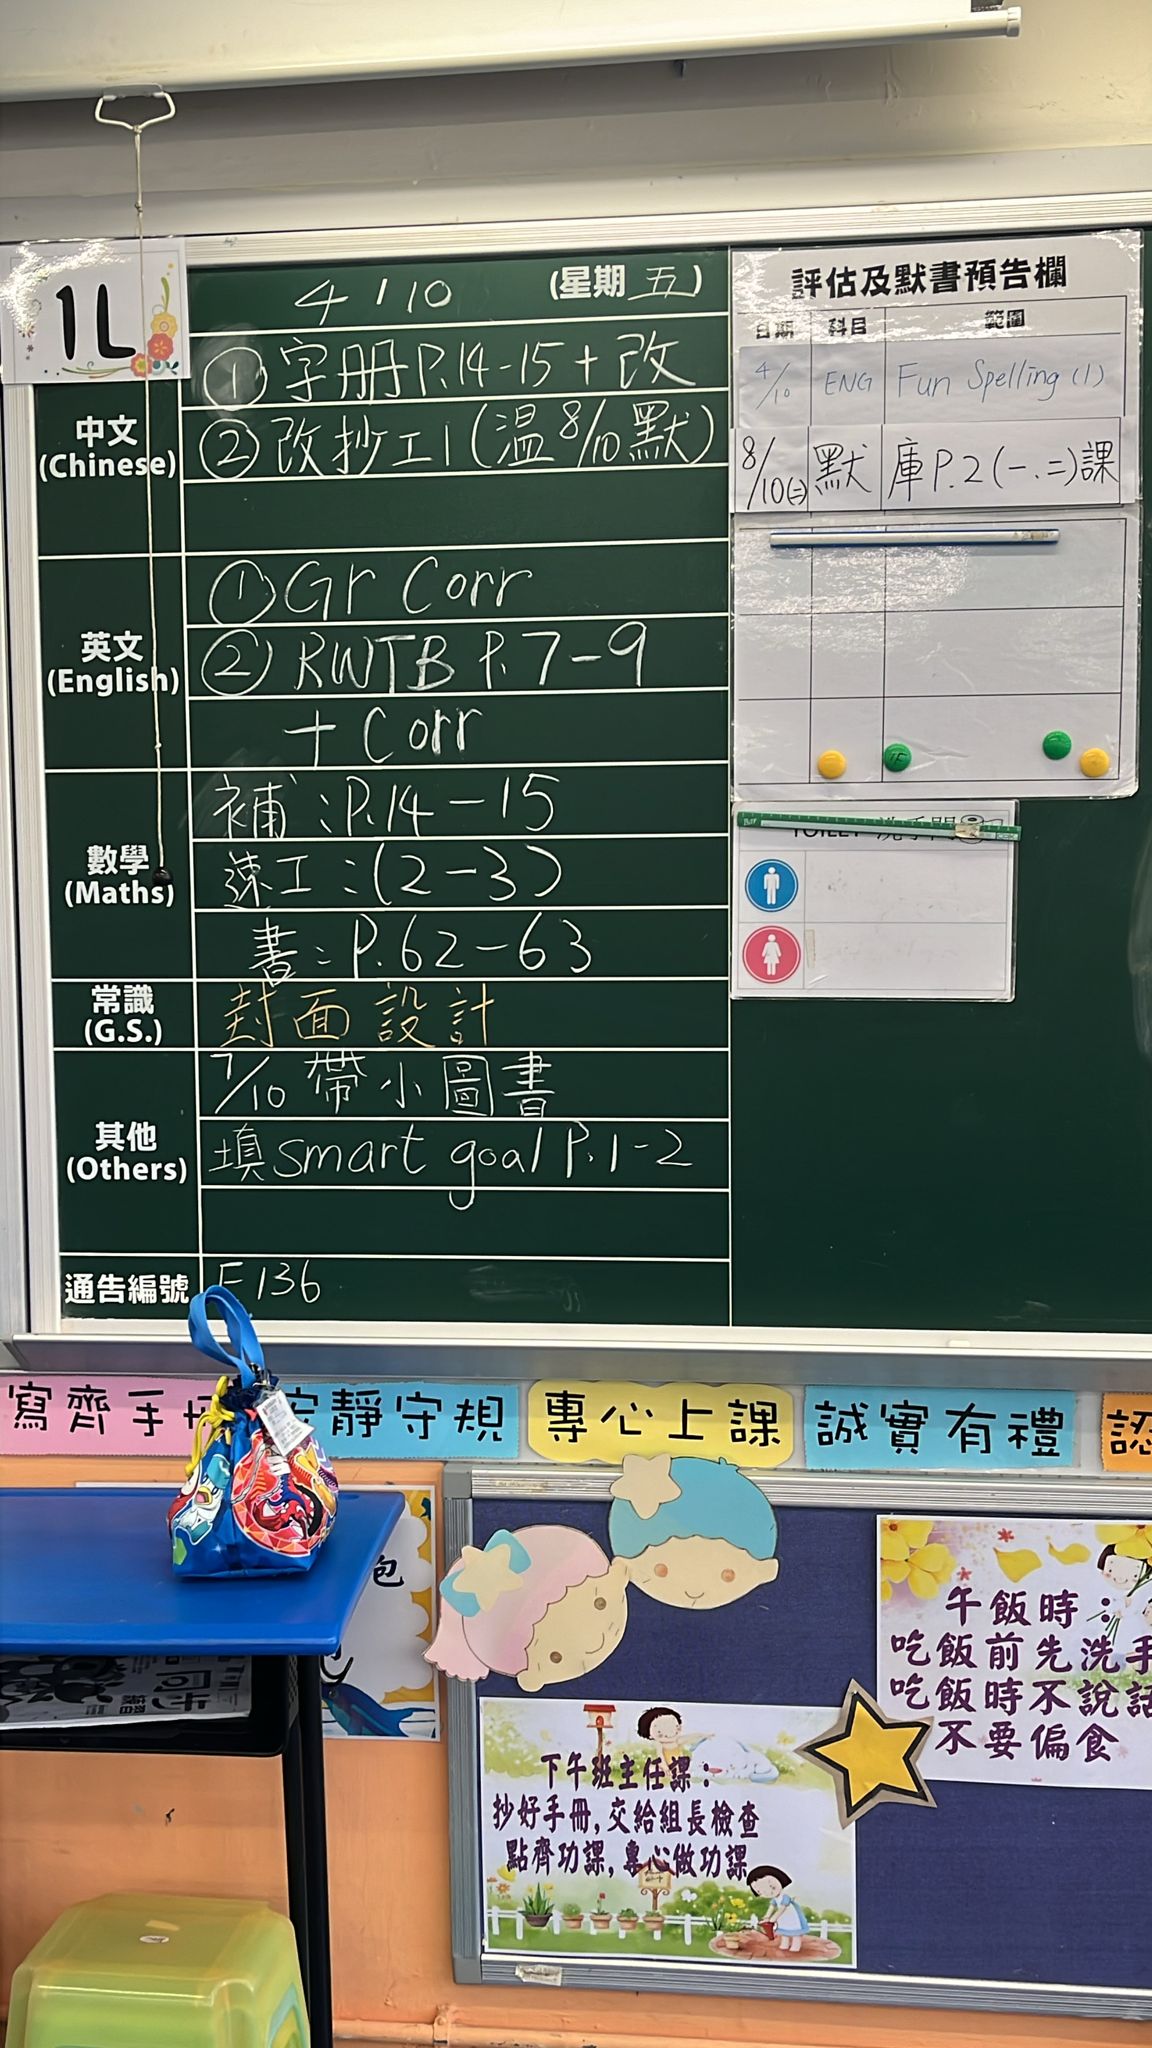 1L
4/10 (星期五)
中文
(Chinese)
① 字册P.14-15+改
② 改抄工1(溫8/10默)
英文
(English)
① Gr Corr
② RWTB P.7-9
+ Corr
數學
(Maths)
補:P.14-15
速工:(2-3)
書:P.62-63
常識
(G.S.)
封面設計
其他
(Others)
7/10 帶小圖書
填smart goal P.1-2
通告編號
E136
評估及默書預告欄
日期 科目 範圍
4/10 ENG Fun Spelling (1)
8/10(二) 默 庫P.2(一.二)課
TOILET 洗手間
寫齊手冊
安靜守規
專心上課
誠實有禮
認
包
午飯時:
吃飯前先洗手
吃飯時不說話
不要偏食
下午班主任課:
抄好手冊,交給組長檢查
點齊功課,專心做功課